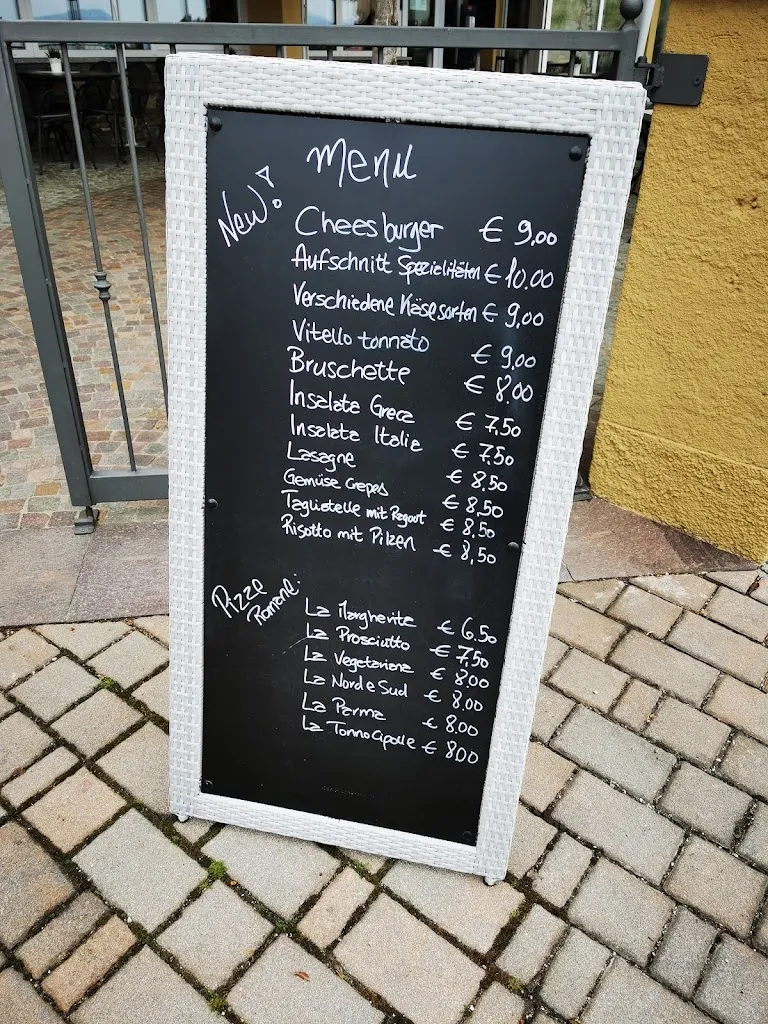 Menu
New!
Cheesburger € 9,00
Aufschnitt Spezielitäten € 10.00
Verschiedene Käsesorten € 9,00
Vitello tonnato € 9,00
Bruschette € 8,00
Insalata Greca € 7,50
Insalata Italie € 7,50
Lasagne € 8,50
Gemüse Crepes € 8,50
Tagliatelle mit Ragout € 8,50
Risotto mit Pilzen € 8,50
Pizze Romane:
La Margherita € 6.50
La Prosciutto € 7,50
La Vegetariana € 8,00
La Nord e Sud € 8.00
La Parma € 8.00
La Tonno cipolle € 8,00